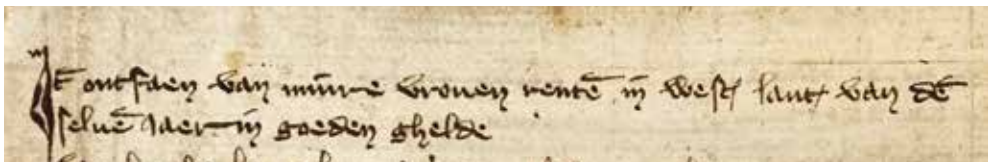 Jt̄ ontfaen van minre vrouen rentē in west lant van dē
seluē Jaer in goeden ghelde